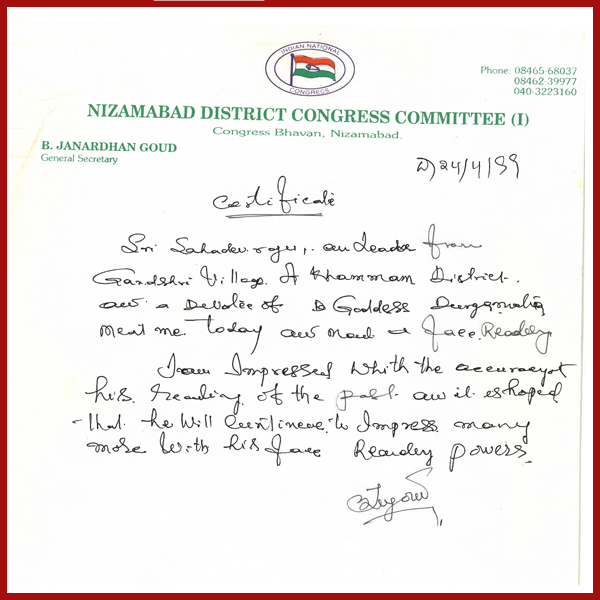 INDIAN NATIONAL
CONGRESS
Phone: 08465-68037
08462-39977
040-3223160
NIZAMABAD DISTRICT CONGRESS COMMITTEE (I)
Congress Bhavan, Nizamabad.
B. JANARDHAN GOUD
General Secretary
D) 24/4/99
Certificate
Sri Sahadev, an Leader from
Village of Khammam District.
a Devotee of Goddess
me Today a Face Reading
I am Impressed With the accuracy of
his reading of the past it is hoped
that he will to Impress many
more With his Face Reading powers